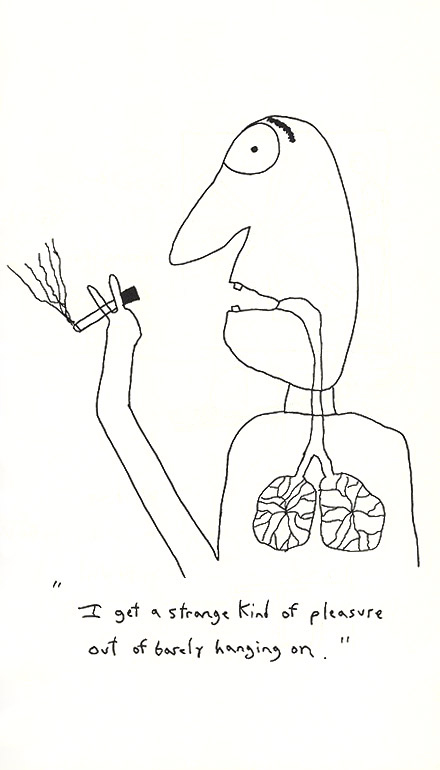 "I get a strange kind of pleasure
out of barely hanging on."